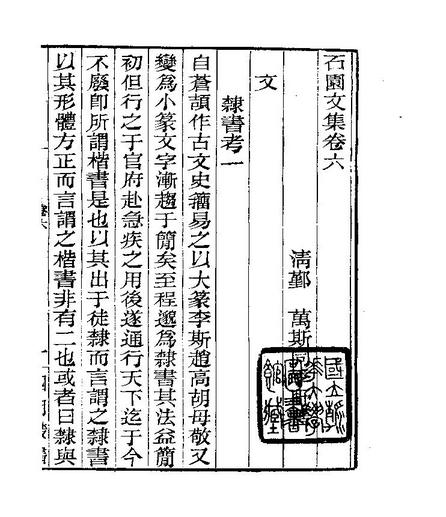 石園文集卷六
清鄞 萬斯
文
隸書考一
自蒼頡作古文史籀易之以大篆李斯趙高胡母敬又
變為小篆文字漸趨于簡矣至程邈為隸書其法益簡
初但行之于官府赴急疾之用後遂通行天下迄于今
不廢即所謂楷書是也以其出于徒隸而言謂之隸書
以其形體方正而言謂之楷書非有二也或者曰隸與